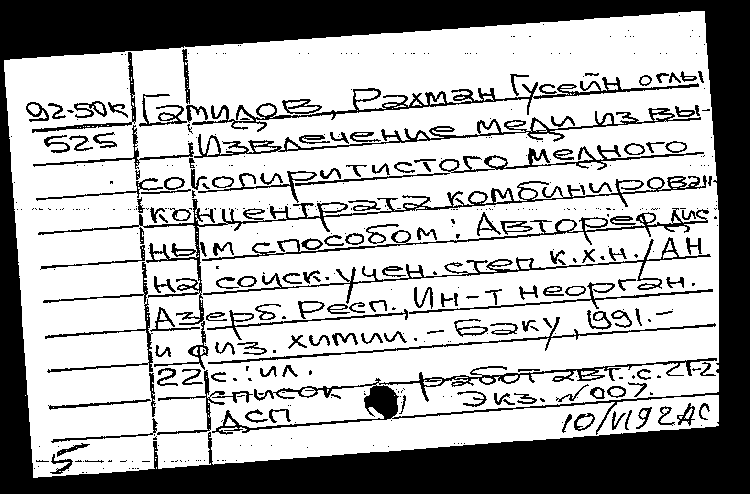 92-50к Гамидов, Рахман Гусейн оглы
525 Извлечение меди из вы-
сокопиритистого медного
концентрата комбинирован-
ным способом: Автореф. дис.
на соиск. учен. степ. к.х.н. / АН
Азерб. Респ., Ин-т неорган.
и физ. химии. - Баку, 1991. -
22 с. : ил.
список работ авт.: с. 21-2
ДСП Экз. №007.
5 10/VI92 АС